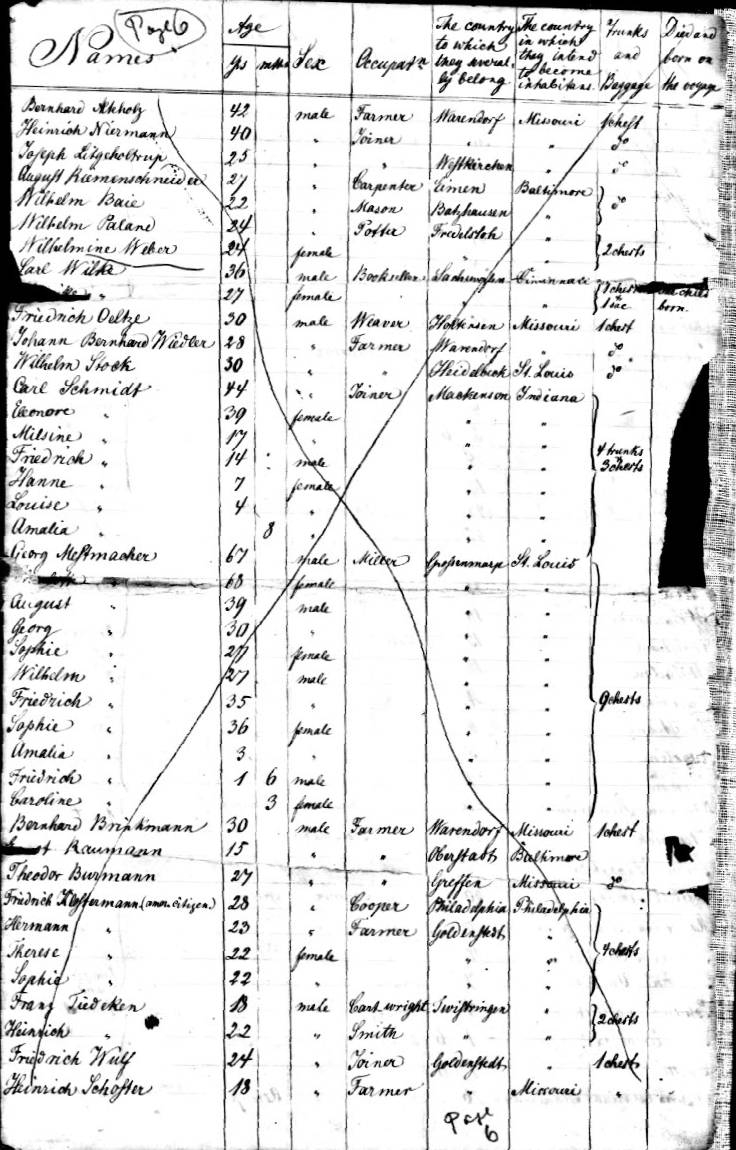 Page 6
Names Age Sex Occupat.n The country to which they several- ly belong The country in which they intend to become inhabitans Trunks and Baggage Died and born on the voyage
yrs mths
Bernhard 42 male Farmer Warendorf Missouri 1 chest
Heinrich Niermann 40 " Joiner " " do
Joseph 25 " " Westkirchen " do
August Riemenschneider 27 " Carpenter Baltimore
Wilhelm Baie 22 " Mason Batzhausen " do
Wilhelm Paland 24 " Potter Fredelsloh "
Wilhelmine Weber 24 female " " 2 chests
Carl 36 male Bookseller Cincinnati
" 27 female " 1 chest child
1 sac born.
Friedrich Oeltze 30 male Weaver Missouri 1 chest
Johann Bernhard Wiedler 28 " Farmer Warendorf " do
Wilhelm Stock 30 " " Heidelbeck St. Louis do
Carl Schmidt 44 " Joiner Mackenson Indiana
Eleonore " 39 female " "
Milsine " 17 " " "
Friedrich " 14 male " " 4 trunks
Hanne " 7 female " " 3 chests
Louise " 4 " " "
Amalia " 8 " " "
Georg Mestmacher 67 male Miller St. Louis
" 68 female " "
August " 39 male " "
Georg " 30 " " "
Sophie " 27 female " "
Wilhelm " 27 male " "
Friedrich " 35 " " " 9 chests
Sophie " 36 female " "
Amalia " 3 " " "
Friedrich " 1 6 male " "
Caroline " 3 female " "
Bernhard Brinkmann 30 male Farmer Warendorf Missouri 1 chest
Raumann 15 " " Oberstadt Baltimore
Theodor Burmann 27 " " Greffen Missouri do
Friedrich Klostermann (amer. citizen.) 28 " Cooper Philadelphia Philadelphia
Hermann " 23 " Farmer Goldenstedt "
Therese " 22 female " " 4 chests
Sophia " 22 " " "
Franz Tiedeken 18 male Cartwright Twistringen "
Heinrich " 22 " Smith " " 2 chests
Friedrich Wulf 24 " Joiner Goldenstedt " 1 chest
Heinrich Schoster 18 " Farmer " Missouri "
Page 6